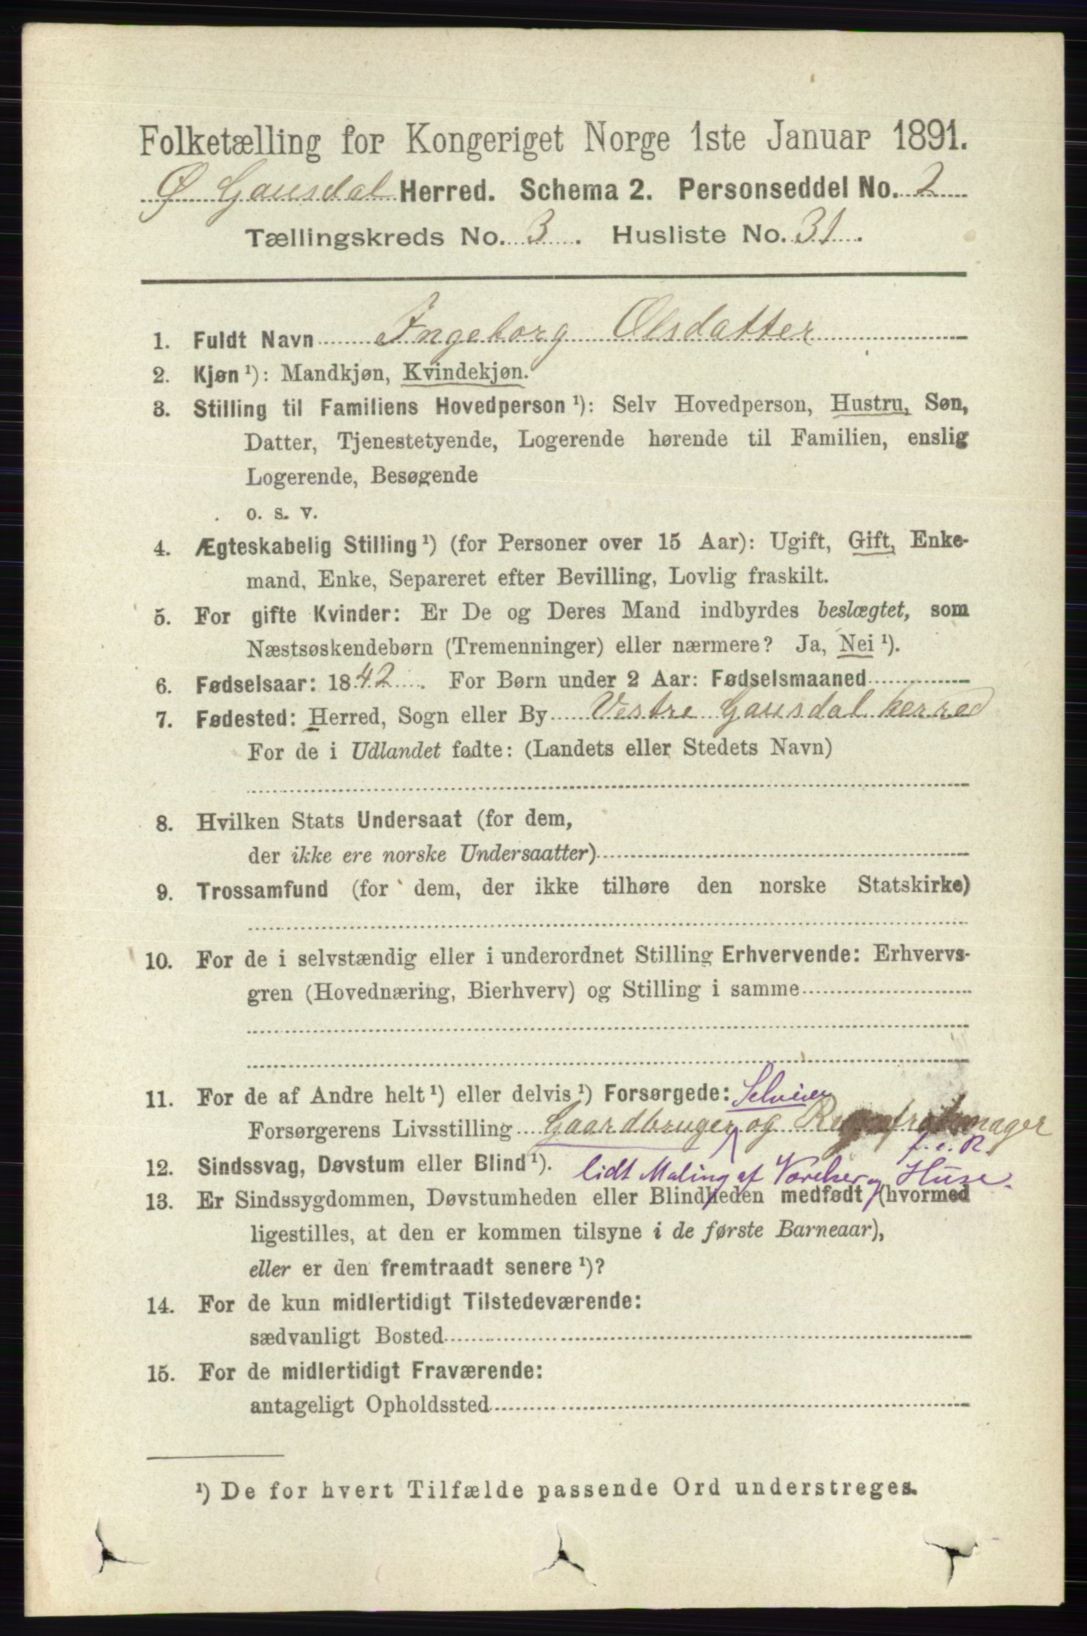 Folketælling for Kongeriget Norge 1ste Januar 1891.
Ø Gausdal Herred. Schema 2. Personseddel No. 2
Tællingskreds No. 3. Husliste No. 31.
1. Fuldt Navn Ingeborg Olsdatter
2. Kjøn ¹): Mandkjøn, Kvindekjøn.
3. Stilling til Familiens Hovedperson ¹): Selv Hovedperson, Hustru, Søn,
Datter, Tjenestetyende, Logerende hørende til Familien, enslig
Logerende, Besøgende
o. s. v.
4. Ægteskabelig Stilling ¹) (for Personer over 15 Aar): Ugift, Gift, Enke-
mand, Enke, Separeret efter Bevilling, Lovlig fraskilt.
5. For gifte Kvinder: Er De og Deres Mand indbyrdes beslægtet, som
Næstsøskendebørn (Tremenninger) eller nærmere? Ja, Nei ¹).
6. Fødselsaar: 1842. For Børn under 2 Aar: Fødselsmaaned
7. Fødested: Herred, Sogn eller By Vestre Gausdal herred
For de i Udlandet fødte: (Landets eller Stedets Navn)
8. Hvilken Stats Undersaat (for dem,
der ikke ere norske Undersaatter)
9. Trossamfund (for dem, der ikke tilhøre den norske Statskirke)
10. For de i selvstændig eller i underordnet Stilling Erhvervende: Erhvervs-
gren (Hovednæring, Bierhverv) og Stilling i samme
11. For de af Andre helt ¹) eller delvis ¹) Forsørgede: Selveier
Forsørgerens Livsstilling Gaardbruger og
12. Sindssvag, Døvstum eller Blind ¹). lidt Maling af Værelser og Huse.
13. Er Sindssygdommen, Døvstumheden eller Blindheden medfødt (hvormed
ligestilles, at den er kommen tilsyne i de første Barneaar),
eller er den fremtraadt senere ¹)?
14. For de kun midlertidigt Tilstedeværende:
sædvanligt Bosted
15. For de midlertidigt Fraværende:
antageligt Opholdssted
¹) De for hvert Tilfælde passende Ord understreges.